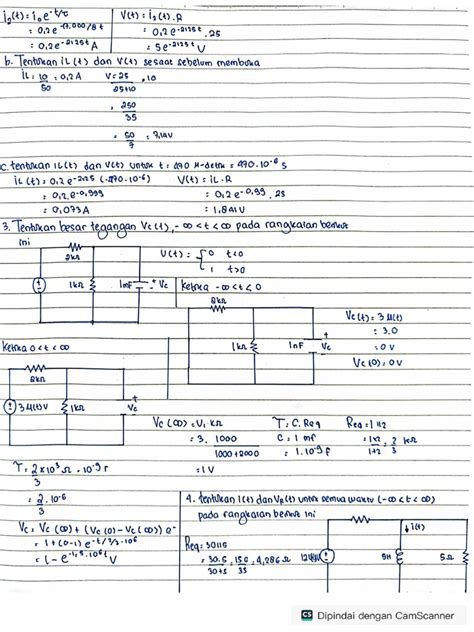 i₀(t) = i₀e^-t/τ
= 0,2e^-17.000/8 t
= 0,2e^-2125t A
V(t) = i₀(t).R
= 0,2e^-2125t . 25
= 5e^-2125t V
b. Tentukan iL(t) dan V(t) sesaat sebelum membuka
iL = 10/50 = 0,2A
V = 25/(25+10) . 10
= 250/35
= 50/7 = 7,14V
c. Tentukan iL(t) dan V(t) untuk t = 470 μ-detik = 470.10^-6 s
iL(t) = 0,2e^-2125 (470.10^-6)
= 0,2e^-0,999
= 0,073A
V(t) = iL.R
= 0,2e^-0,99 . 25
= 1,841V
3. Tentukan besar tegangan Vc(t), -∞<t<∞ pada rangkaian berikut
ini
2kΩ
1kΩ
1nF
+ Vc
U(t) = { 0 t<0
1 t>0
Ketika -∞<t<0
2kΩ
1kΩ
1nF
+
Vc
-
Vc(t) = 3μ(t)
= 3.0
= 0V
Vc(0) = 0V
Ketika 0<t<∞
2kΩ
3μ(t)V
1kΩ
+
Vc
-
Vc(∞) = V. kΩ
= 3. 1000/(1000+2000)
= 1V
T = C.Req
C = 1 nf
= 1.10^-9 f
Req = 1//2
= 1x2/1+2 = 2/3 kΩ
T = 2/3 x10³ Ω . 10^-9 f
= 2/3 . 10^-6
Vc = Vc(∞) + (Vc(0) - Vc(∞)) e^-
= 1+(0-1) e^-t/2/3.10^6
= 1-e^-1,5.10^6t V
4. Tentukan i(t) dan VR(t) untuk semua waktu (-∞<t<∞)
pada rangkaian berikut ini
Req = 30//5
= 30.5/30+5 = 150/35 = 4,286Ω
i(t)
5H
5Ω
CS Dipindai dengan CamScanner